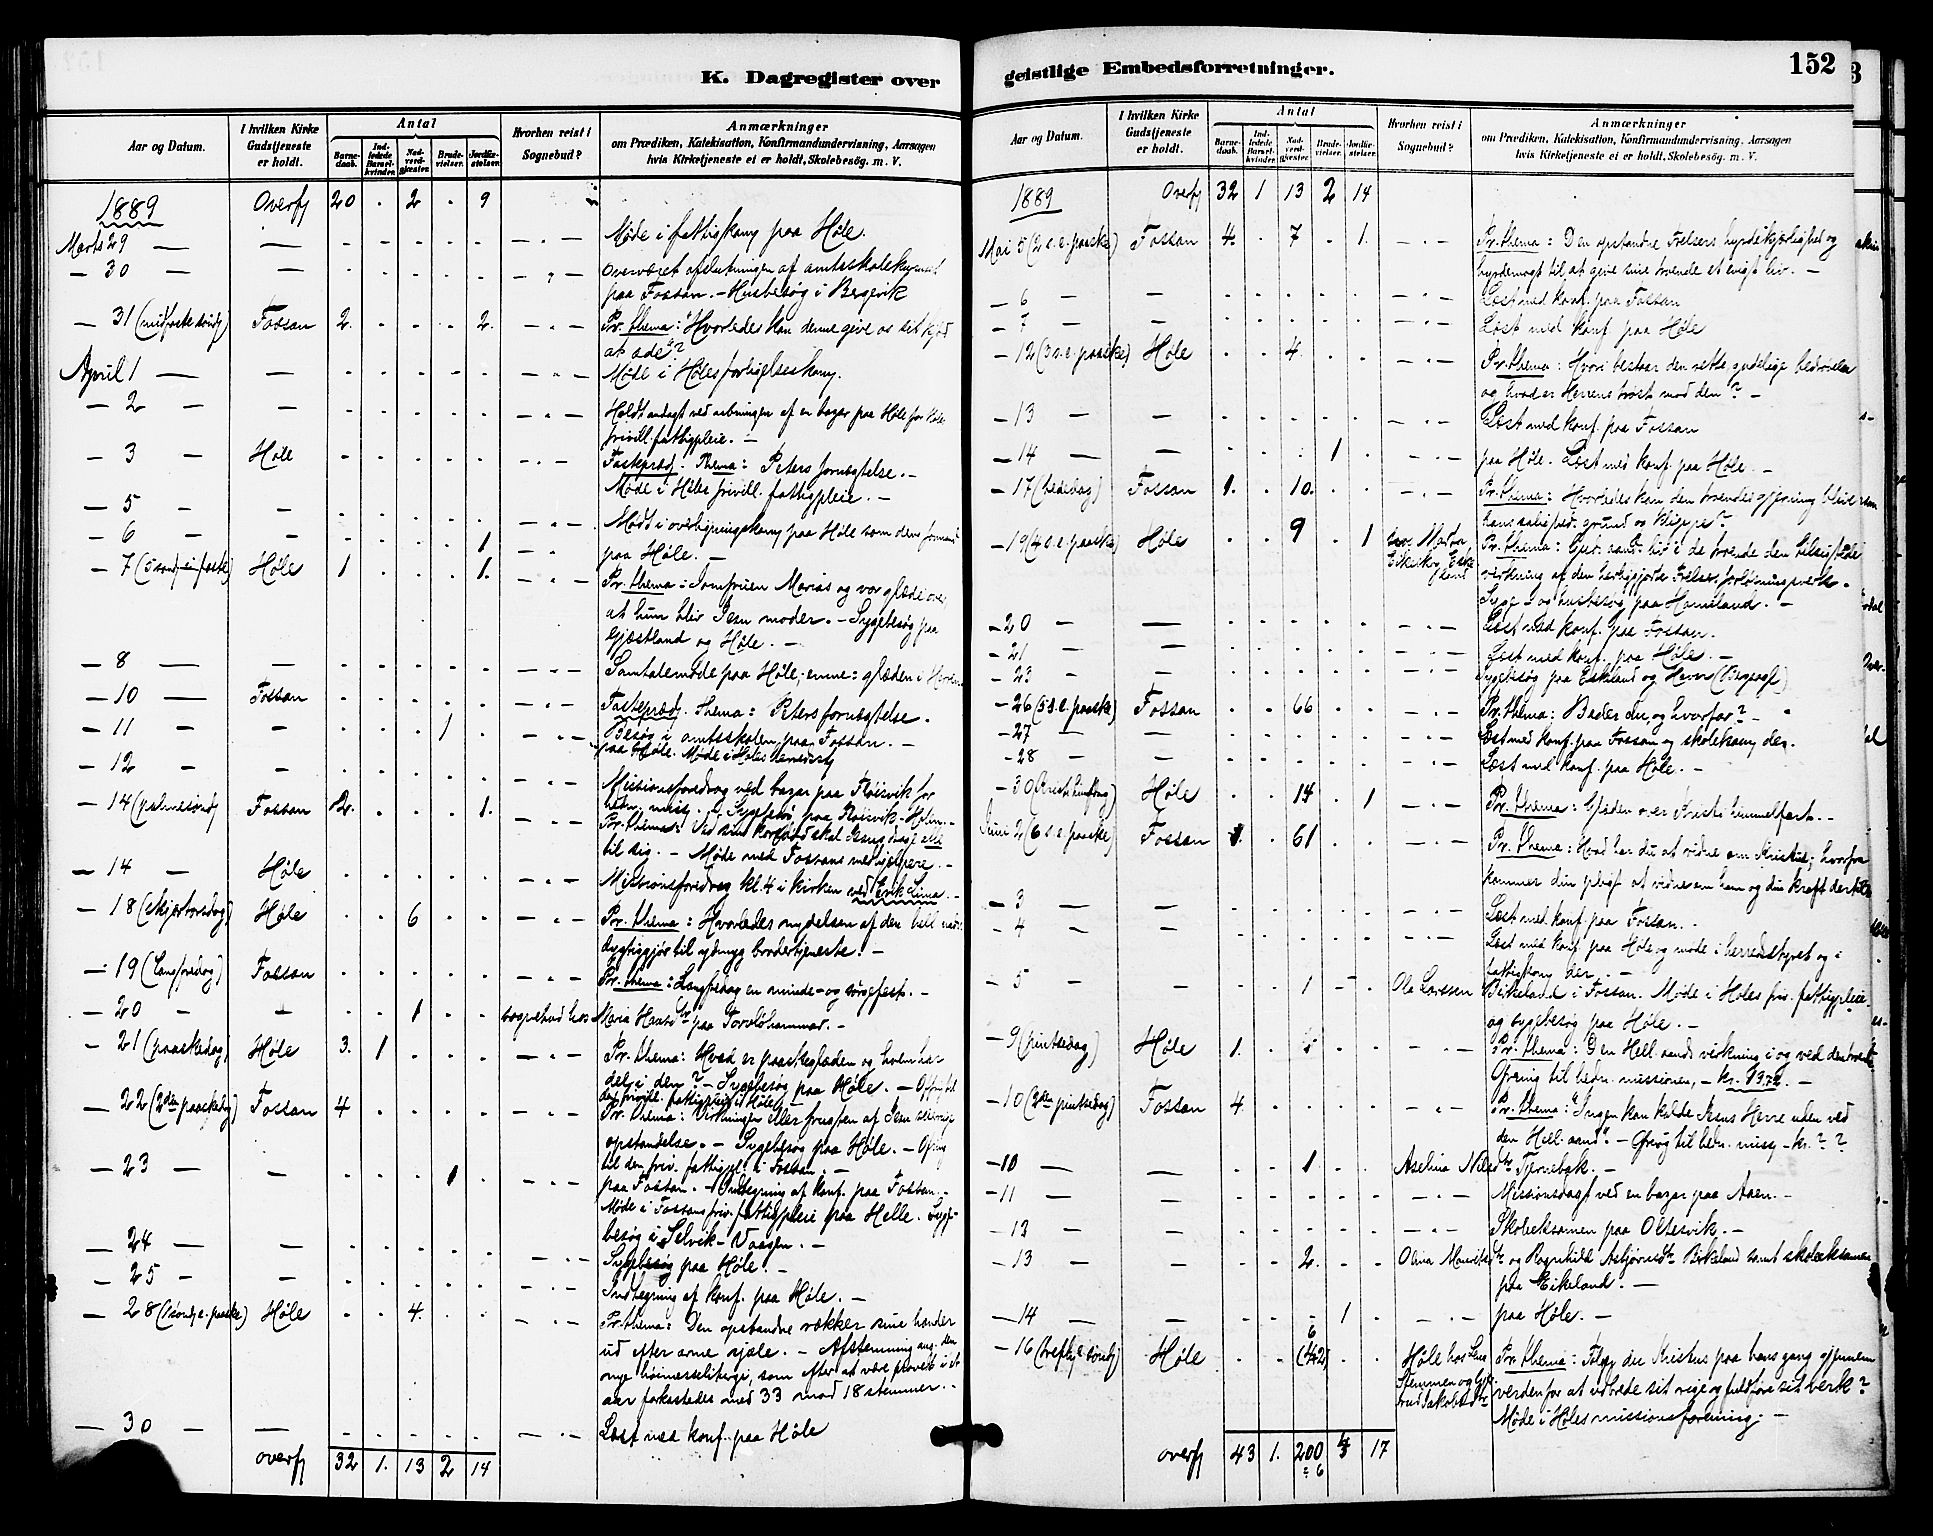 K. Dagregister over
Aar og Datum.
I hvilken Kirke Gudstjeneste er holdt.
Antal
Barnedaab.
Indledede Barselkvinder.
Nadverdgjæster.
Brudevielser.
Jordfæstelser.
Hvorhen reist i Sognebud?
Anmærkninger
om Prædiken, Katekisation, Konfirmandundervisning, Aarsagen
hvis Kirketjeneste ei er holdt, Skolebesøg. m. V.
1889 Overf 20 . 2 . 9
Marts 29 — — Møde i fattigkom paa Høle.
— 30 — — Overværet afslutningen af amtsskolekurset
paa Fossan. – Husbesøg i Bergevik
— 31 (midfaste søndg) Fossan 2. . . . 2. Pr. thema: "Hvorledes kan denne give os sit kjød
at æde"?
April 1 — — Møde i Høles forligelseskom.
— 2 — — Holdt andagt ved aabningen af en bazar paa Høle for Høles
frivill. fattigpleie. –
— 3 Høle Fastepræd. Thema: Peters fornegtelse. –
— 5 — — Møde i Høles frivill. fattigpleie. –
— 6 — — 1 Mødt i overligningskom paa Høle som dens formand
paa Høle. –
— 7 (5 sond. i faste) Høle 1 . . . 1. Pr. thema: Jomfruen Marias og vor glæde over,
at hun blev Jesu moder. – Sygebesøg paa
Gjæstland og Høle. –
— 8 — — Samtalemøde paa Høle; emne: glæden i Herren.
— 10 — Fossan Fastepræd. Thema: Peters fornegtelse.
— 11 — — 1 Besøg i amtsskolen paa Fossan. –
paa Høle. Møde i Høles herredsst
— 12 — — Missionsforedrag ved bazar paa Røisvik for
hedn. miss. – Sygebesø. paa Røisvik-Holm. –
— 14 (palmesønd) Fossan 2. . . . 1. Pr. thema: Ved sin korsdød skal Jesus drage alle
til sig. – Møde med Fossans medhjælpere. –
— 14 — Høle Missionsforedrag kl. 4 i kirken ved Erik Lima. –
— 18 (skjærtorsdag) Høle . . 6 Pr. thema: Hvorledes nydelsen af den hell. nadv.
dygtiggjør til ydmyg brodertjeneste. –
— 19 (Langfredag) Fossan Pr. thema: Langfredag en minde- og sørgefest. –
— 20 — — 1 sognebud hos Maria Hansdtr paa Torvldhammar. –
— 21 (paaskedag) Høle 3. 1 Pr. thema: Hvad er paaskeglæden og hvem har
del i den? – Sygebesøg paa Høle. – Offring til
den frivill. fattigpleie i Høle.
— 22 (2den paaskedg) Fossan 4 Pr. thema: Virkningen eller frugten af Jesu
opstandelse. – Sygebesøg paa Høle. – Ofring
til den friv. fattigpl. i Fossan. –
— 23 — — 1 paa Fossan. – Indtegning af konf. paa Fossan. –
Møde i Fossans friv. fattigpleie paa Helle. Syge-
besøg i Selvik-Vaagen. –
— 24 — — Sygebesøg paa Høle. –
— 25 — — Indtegning af konf. paa Høle. –
— 28 (1 sønd. e. paaske) Høle . . 4. Pr. thema: Den opstandne rækker sine hænder
ud efter arme sjæle. – Afstemning ang. den
nye høimesseliturgi, som efter at være prøvet i et
aar forkastedes med 33 mod 18 stemmer. –
— 30 — — Læst med konf. paa Høle
overf 32 1. 13 2 14
geistlige Embedsforretninger.
152
Aar og Datum.
I hvilken Kirke Gudstjeneste er holdt.
Antal
Barnedaab.
Indledede Barselkvinder.
Nadverdgjæster.
Brudevielser.
Jordfæstelser.
Hvorhen reist i Sognebud?
Anmærkninger
om Prædiken, Katekisation, Konfirmandundervisning, Aarsagen
hvis Kirketjeneste ei er holdt, Skolebesøg. m. V.
1889 Overf 32 1 13 2 14
Mai 5 (2 s. e. paaske) Fossan 4. . 7 . 1. Pr. thema: Den opstandne Frelsers hyrdekjærlighed og
hyrdemagt til at give sine troende et evigt liv. –
— 6 — — Læst med konf. paa Fossan
— 7 — — Læst med konf. paa Høle
— 12 (3 s. e. paaske) Høle . . 4. Pr. thema: Hvori bestaar den rette gudelige bedrøvelse
og hvad er Herrens trøst mod den? –
— 13 — — Læst med konf. paa Fossan
— 14 — — 1 paa Høle. Læst med konf. paa Høle. –
— 17 (bededag) Fossan 1. . 10. Pr. thema: Hvorledes kan den troendes gjerning blive som
hans saligheds grund og klippe? –
— 19 (4 s. e. paaske) Høle . . 9 . 1 Pr. thema: Gjst. sandt liv i de troende den tilsigtede
virkning af den herliggjorte Frelsers forløsningsverk.
Syge- og husbesøg paa Hommeland. –
— 20 — — Læst med konf. paa Fossan.
— 21 — — Læst med konf. paa Høle. –
— 23 — Sygebesøg paa Eskeland og Havn (Bergsagl)
— 26 (5 s. e. paaske) Fossan . . 66 Pr. thema: Beder du, og hvorfor? –
— 27 — — Læst med konf. paa Fossan og skolekom der.
— 28 — — Læst med konf. paa Høle. –
— 30 (Kristi himfdag) Høle . . 14 . 1 Pr. thema: Glæden over Kristi himmelfart. –
Juni 2 (6 s. e. paaske) Fossan 1. . 61 Pr. thema: Hvad har du at vidne om Kristus; hvorfra
kommer din pligt at vidne om ham og din kraft dertil?
— 3 — — Læst med konf. paa Fossan. –
— 4 — — Læst med konf. paa Høle og møde i herredsstyret og i
fattigkom der. –
— 5 — — 1 Ola Larssen Birkeland i Fossan. Møde i Høles friv. fattigpleie
og sygebesøg paa Høle. –
— 9 (pintsedag) Høle 1. Pr. thema: Den Hell. aands virkning i og ved den troende
Ofring til hedn. missionen, –
— 10 (2den pintsedag) Fossan 4. Pr. thema: "Ingen kan kalde Jesus Herre uden ved
den Hell. aand". – Ofring til hedn. miss – kr. ? ?
— 10 — — 1 Aselina Nilsdtr Tjernebak. –
— 11 — — Missionsdagf ved en bazar paa Aaen. –
— 13 — Skoleeksamen paa Oltesvik. –
— 13 — — 2. Olina Mauritsdtr og Ragnhild Asbjørnsdtr Birkeland samt skoleeksamen
paa Eikeland. –
— 14 — — 1 paa Høle. –
— 16 (trefh. søndg) Høle . . 6 (42) Høle hos Lens Pr. thema: Følger du Kristus paa hans gang gjennem
verden for at udbrede sit rige og fuldføre sit verk?
Møde i Høles missionsforening. –
overf 43 1. 200 4 17
6